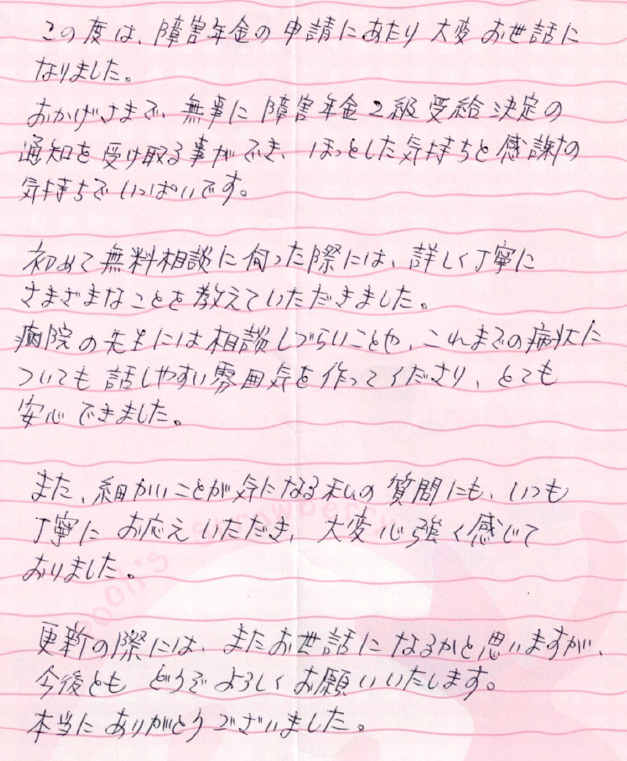 この度は、障害年金の申請にあたり大変お世話に
なりました。
おかげさまで、無事に障害年金2級受給決定の
通知を受け取る事ができ、ほっとした気持ちと感謝の
気持ちでいっぱいです。
初めて無料相談に伺った際には、詳しく丁寧に
さまざまなことを教えていただきました。
病院の先生には相談しづらいことや、これまでの病状に
ついても話しやすい雰囲気を作ってくださり、とても
安心できました。
また、細かいことが気になる私の質問にも、いつも
丁寧にお応えいただき、大変心強く感じて
おりました。
更新の際には、またお世話になるかと思いますが、
今後ともどうぞよろしくお願いいたします。
本当にありがとうございました。